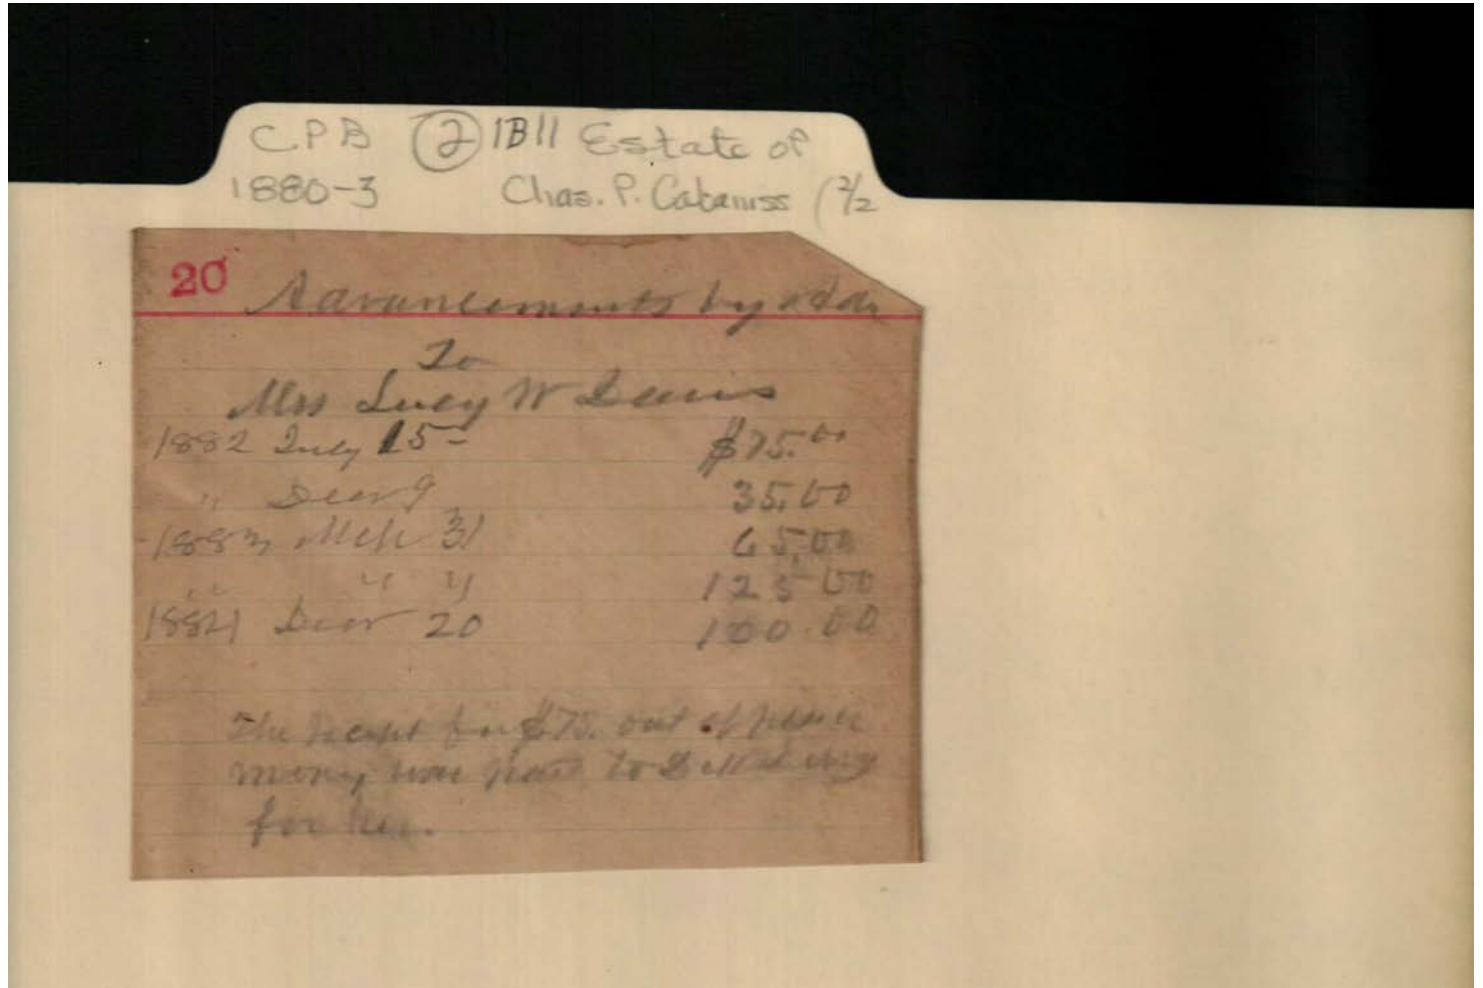 CPB (2) 1B11 Estate of
1880-3 Chas. P. Cabaniss (2/2
20 Advancements by Adm
To
Mrs Lucy W Davis
1882 July 15- $75.00
" Decr 9 35.00
1883 Mch 31 65.00
" " " 125 00
1884 Decr 20 100.00
The receipt for $75. out of
money was paid to
for her.